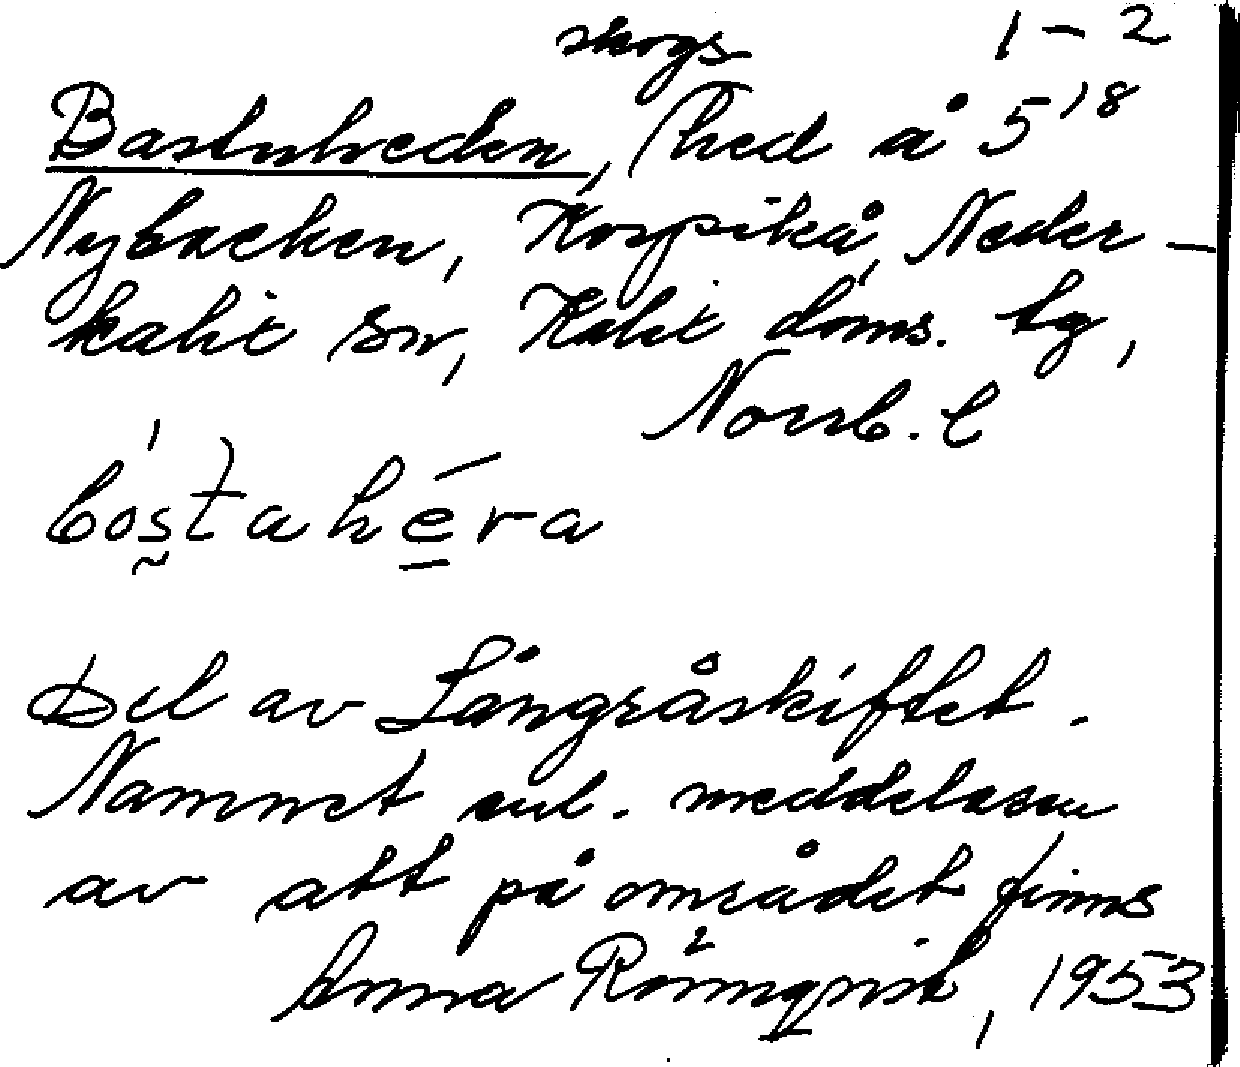 skogs 1-2
Bastuheden, (hed å 5/18
Nybacken, Korpikå, Neder-
kalix sn, Kalix doms. tg,
Norrb. l
bó̀s̰tahéra
Del av Långråskiftet.
Namnet enl. meddelaren
av att på området finns
Anna Rönnqvist, 1953